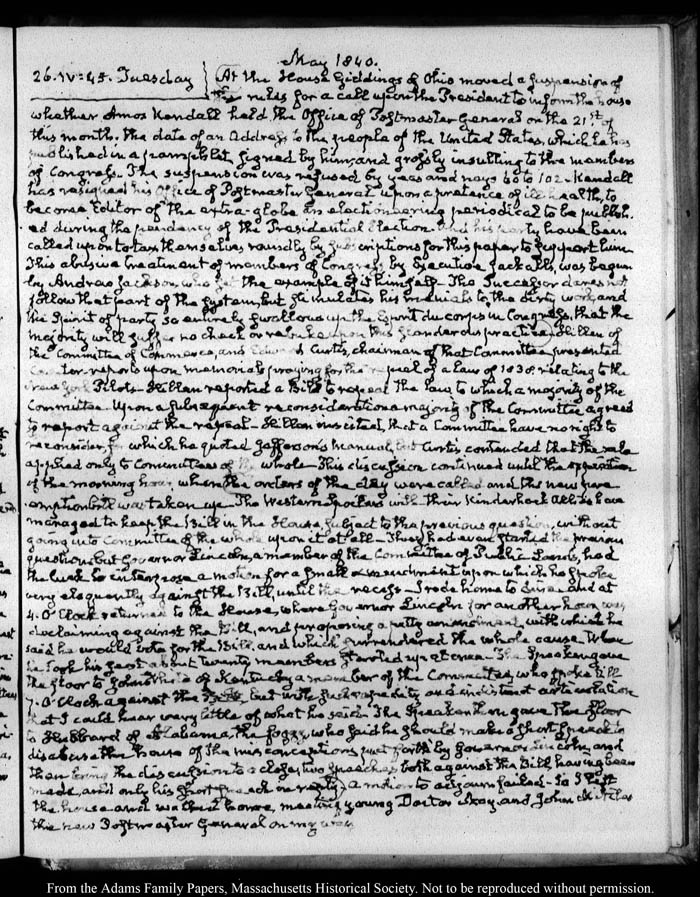 May 1840.
26. IV:45. Tuesday } At the House Giddings of Ohio moved a suspension of
the rules for a call upon the President to inform the house
whether Amos Kendall held the Office of Postmaster General on the 21st. of
this month. the date of an Address to the people of the United States, which he has
published in a pamphlet, signed by him, and grossly insulting to the members
of Congress. The suspension was refused by yeas and nays 60 to 102 – Kendall
has resigned his Office of Postmaster General upon a pretence of ill health, to
become Editor of the extra-globe an electioneering periodical to be publish-
ed during the pendency of the Presidential Election. And his party have been
called upon to tax themselves roundly by subscriptions for this paper to support him
This abusive treatment of members of Congress by Executive Jackalls, was begun
by Andrew Jackson, who set the example of it himself – The Successor dares not
follow that part of the system, but stimulates his menials to the dirty work, and
the Spirit of party so entirely swallows up the Esprit du corps in Congress, that the
majority will suffer no check or rebuke upon this slanderous practice – Hillen of
the Committee of Commerce, and Edward Curtis, chairman of that Committee presented
Counter reports upon memorials praying for the repeal of a law of 1838. relating to the
New York Pilots – Hillen reported a Bill to repeal the law, to which a majority of the
Committee. Upon a subsequent reconsideration a majority of the Committee agreed
to report against the repeal – Hillen insisted, that a Committee have no right to
reconsider, for which he quoted Jefferson's manual, but Curtis contended that the rule
applied only to Committees of the whole – This discussion continued until the expiration
of the morning hour, when the orders of the day were called and the new pre
emption bill was taken up – The Western Spoilers with their Kinderhook Allies have
managed to keep the Bill in the House, subject to the previous question, without
going into Committee of the whole upon it at all – They had even started the previous
question but Governor Lincoln, a member of the Committee of Public Lands, had
the luck to interpose a motion for a small amendment upon which he spoke
very eloquently against the Bill, until the recess – I rode home to dine and at
4. O'Clock returned to the House, where Governor Lincoln for another hour was
declaiming against the Bill, and proposing a petty amendment, with which he
said he would vote for the Bill, and which surrendered the whole cause. When
he took his seat about twenty members started up at once – The Speaker gave
the floor to John White of Kentucky a member of the Committee, who spoke till
7. O'Clock against the Bill, but with such rapidity and indistinct articulation
that I could hear very little of what he said. The Speaker then gave the floor
to Hubbard of Alabama, the foggy, who said he should make a short speech to
disabuse the House of the misconceptions put forth by Governor Lincoln, and
then bring the discussion to a close, two speeches both against the Bill having been
made, and only his short speech in reply – a motion to adjourn failed – So I left
the house and walked home, meeting young Doctor May, and John M. Niles
the new Postmaster General on my way
From the Adams Family Papers, Massachusetts Historical Society. Not to be reproduced without permission.